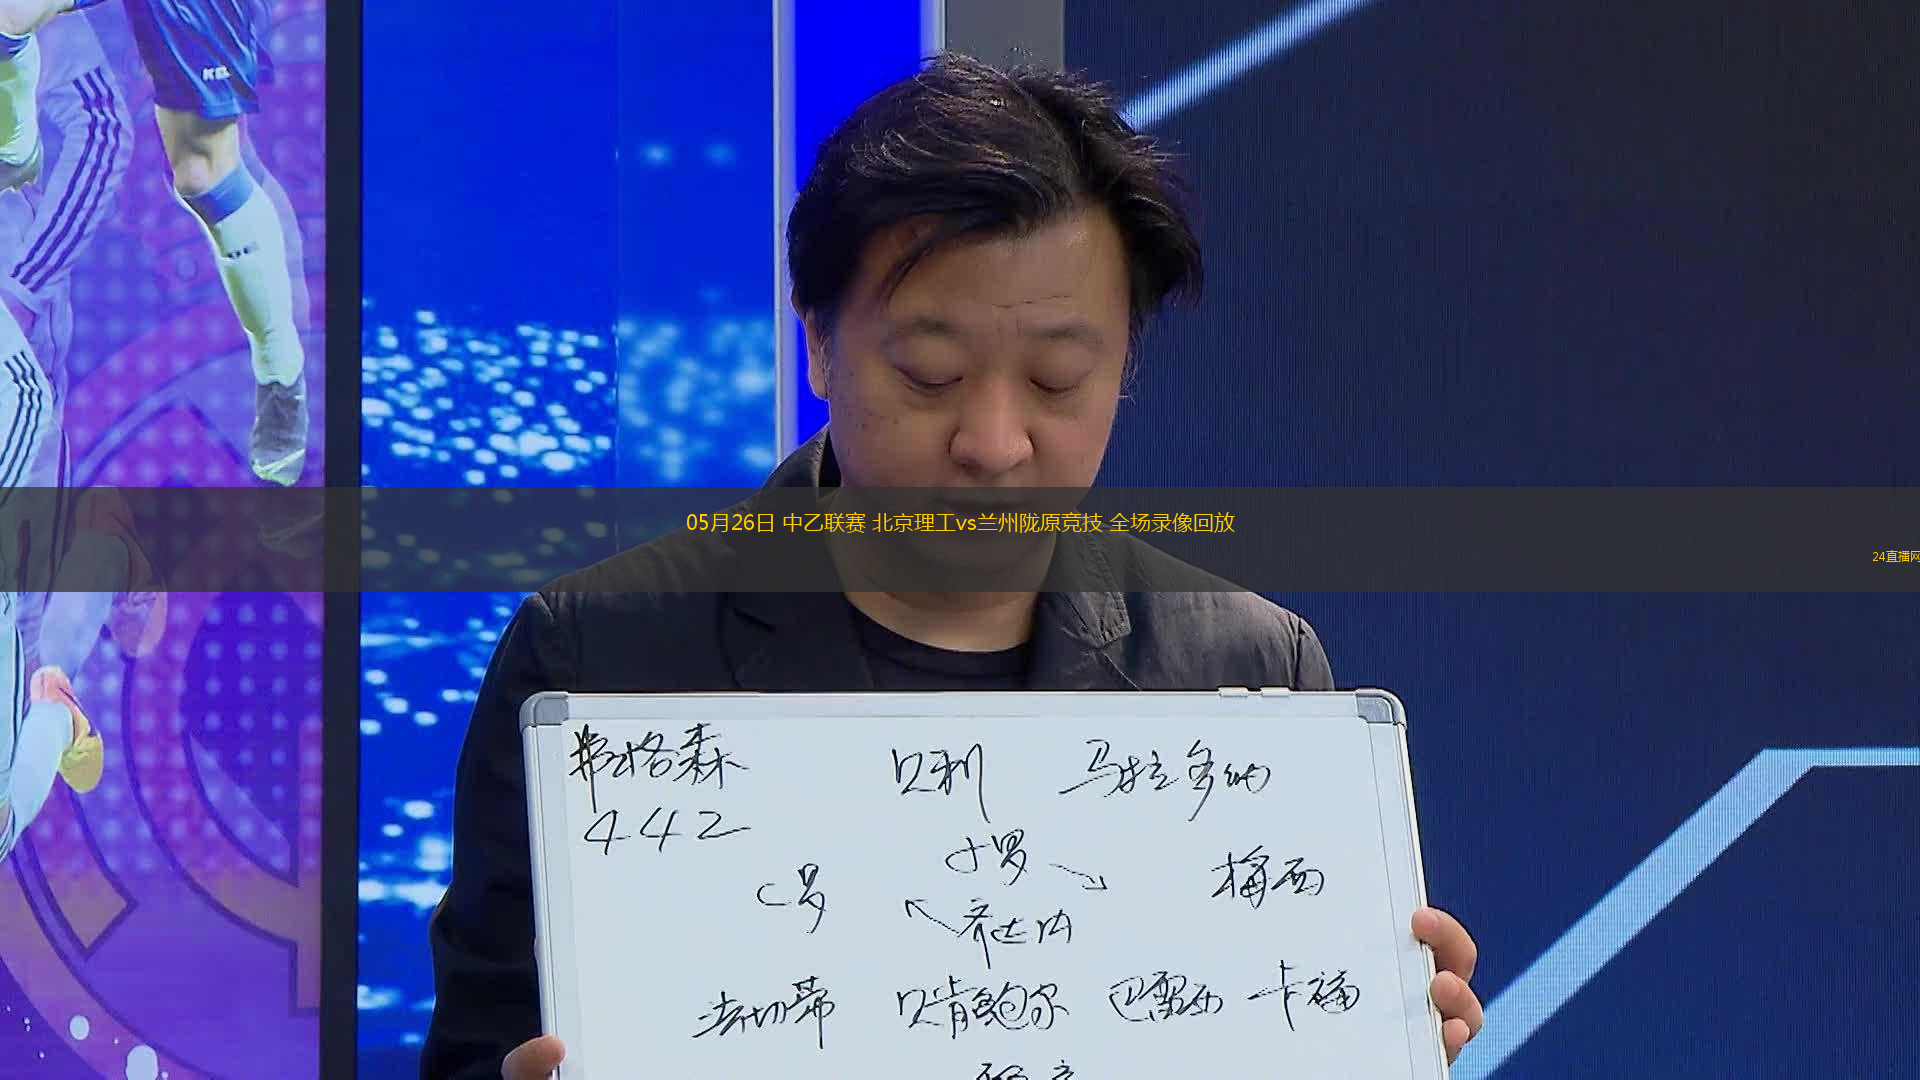 05月26日 中乙联赛 北京理工vs兰州陇原竞技 全场录像回放
24直播网
弗格森 贝利 马拉多纳
442
小罗
C罗 梅西
齐达内
法切蒂 贝肯鲍尔 巴雷西 卡福